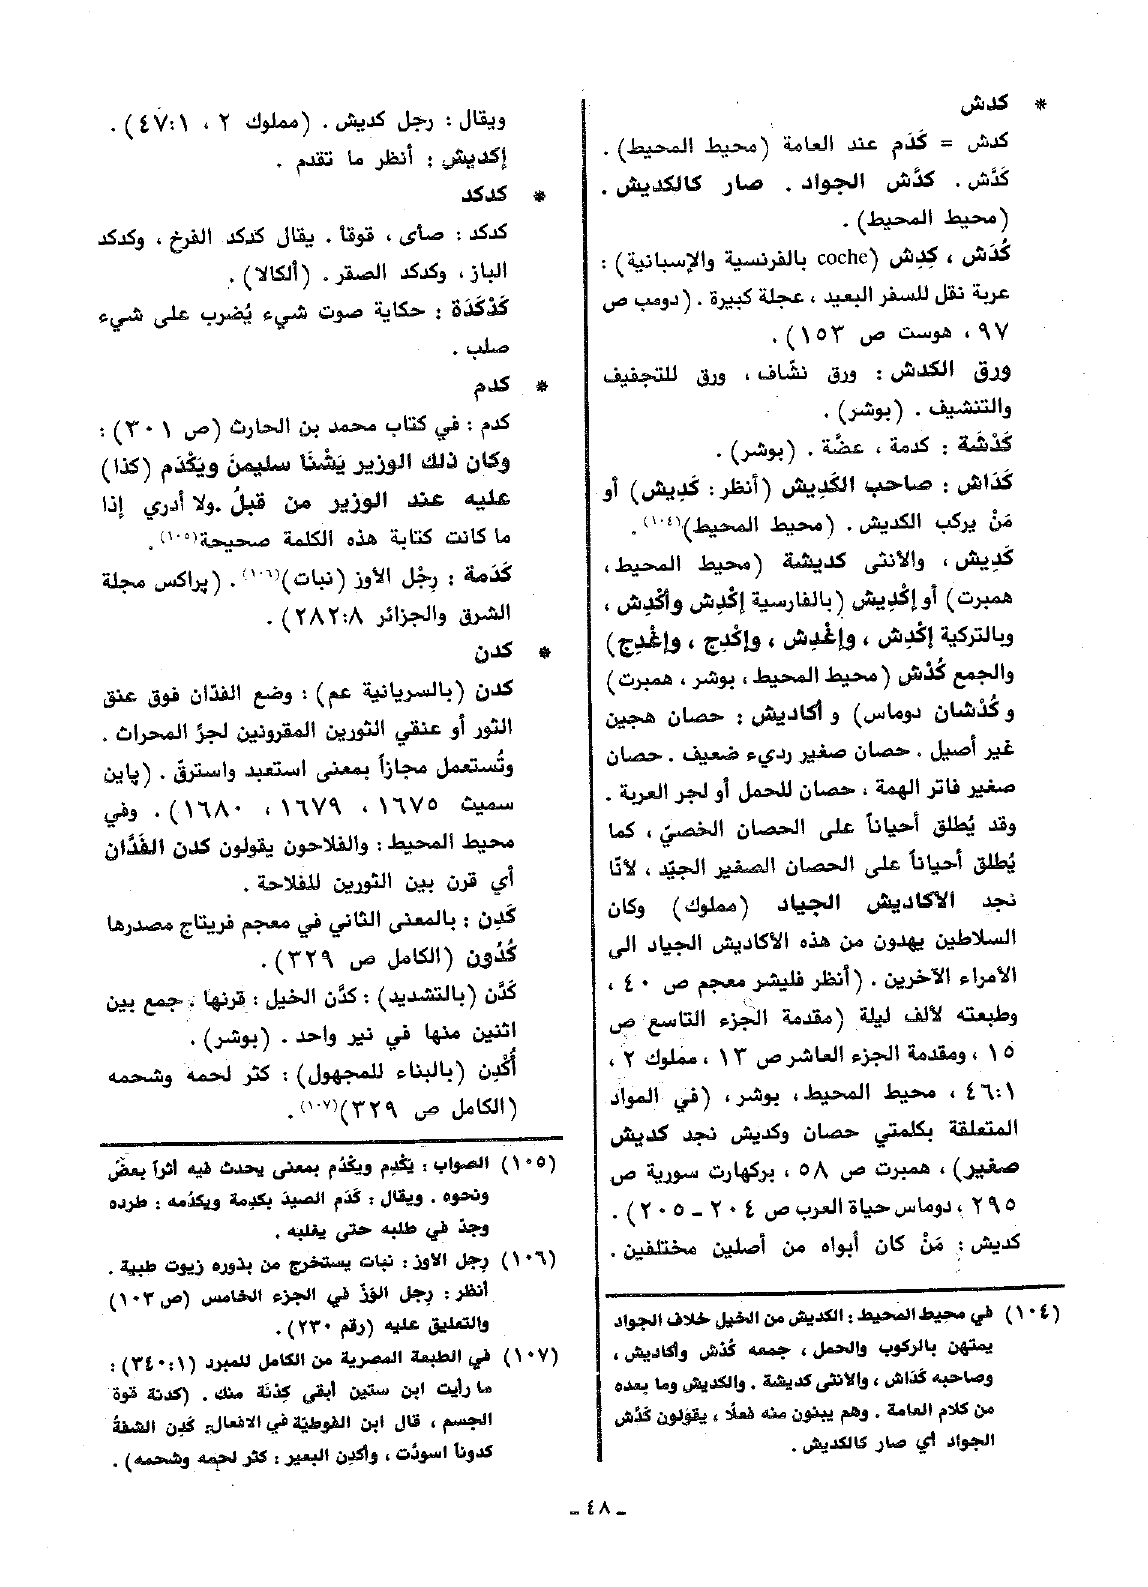 * كدش
كدش = كَدَم عند العامة (محيط المحيط) .
كَدَّش . كدَّش الجواد . صار كالكديش .
(محيط المحيط) .
كُدَش ، كِدِش (coche بالفرنسية والإسبانية) :
عربة نقل للسفر البعيد ، عجلة كبيرة . (دومب ص
٩٧ ، هوست ص ١٥٣) .
ورق الكدش : ورق نشّاف ، ورق للتجفيف
والتنشيف . (بوشر) .
كَدْشَة : كدمة ، عضّة . (بوشر) .
كَدّاش : صاحب الكَدِيش (أنظر : كَدِيش) أو
مَنْ يركب الكديش . (محيط المحيط)(١٠٤) .
كَدِيش ، والأنثى كديشة (محيط المحيط ،
همبرت) أو إكْدِيش (بالفارسية إكْدِش وأكْدِش ،
وبالتركية إكْدِش ، وإغْدِش ، وإكْدِج ، وإغْدِج)
والجمع كُدْش (محيط المحيط ، بوشر ، همبرت)
و كُدْشان دوماس) و أكاديش : حصان هجين
غير أصيل . حصان صغير رديء ضعيف . حصان
صغير فاتر الهمة ، حصان للحمل أو لجر العربة .
وقد يُطلق أحياناً على الحصان الخصيّ ، كما
يُطلق أحياناً على الحصان الصغير الجيّد ، لأنّا
نجد الأكاديش الجياد (مملوك) وكان
السلاطين يهدون من هذه الأكاديش الجياد الى
الأمراء الآخرين . (أنظر فليشر معجم ص ٤٠ ،
وطبعته لألف ليلة (مقدمة الجزء التاسع ص
١٥ ، ومقدمة الجزء العاشر ص ١٣ ، مملوك ٢ ،
٤٦:١ ، محيط المحيط ، بوشر ، (في المواد
المتعلقة بكلمتي حصان وكديش نجد كديش
صغير) ، همبرت ص ٥٨ ، بركهارت سورية ص
٢٩٥ ، دوماس حياة العرب ص ٢٠٤ - ٢٠٥) .
كديش : مَنْ كان أبواه من أصلين مختلفين .
(١٠٤) في محيط المحيط : الكديش من الخيل خلاف الجواد
يمتهن بالركوب والحمل ، جمعه كُدْش وأكاديش ،
وصاحبه كَدّاش ، والانثى كديشة . والكديش وما بعده
من كلام العامة . وهم يبنون منه فعلًا ، يقولون كَدَّش
الجواد أي صار كالكديش .
ويقال : رجل كديش . (مملوك ٢ ، ٤٧:١) .
إكديش : أنظر ما تقدم .
* كدكد
كدكد : صأى ، قوقأ . يقال كدكد الفرخ ، وكدكد
الباز ، وكدكد الصقر . (ألكالا) .
كَدْكَدَة : حكاية صوت شيء يُضرب على شيء
صلب .
* كدم
كدم : في كتاب محمد بن الحارث (ص ٣٠١) :
وكان ذلك الوزير يَشْنَا سليمنَ ويَكْدَم (كذا)
عليه عند الوزير من قبلُ . ولا أدري إذا
ما كانت كتابة هذه الكلمة صحيحة(١٠٥) .
كَدَمة : رِجْل الأوز (نبات)(١٠٦) . (پراكس مجلة
الشرق والجزائر ٢٨٢:٨) .
* كدن
كدن (بالسريانية عم) : وضع الفدّان فوق عنق
الثور أو عنقي الثورين المقرونين لجرّ المحراث .
وتُستعمل مجازاً بمعنى استعبد واسترقّ . (پاين
سميث ١٦٧٥ ، ١٦٧٩ ، ١٦٨٠) . وفي
محيط المحيط : والفلاحون يقولون كدن الفَدَّان
أي قرن بين الثورين للفلاحة .
كَدِن : بالمعنى الثاني في معجم فريتاج مصدرها
كُدُون (الكامل ص ٣٢٩) .
كَدَّن (بالتشديد) : كدَّن الخيل : قرنها . جمع بين
اثنين منها في نير واحد . (بوشر) .
أُكْدِن (بالبناء للمجهول) : كثر لحمه وشحمه
(الكامل ص ٣٢٩)(١٠٧) .
(١٠٥) الصواب : يَكْدِم ويكْدُم بمعنى يحدث فيه أثراً بعضّ
ونحوه . ويقال : كَدَم الصيدَ يكدِمة ويكدُمه : طرده
وجدّ في طلبه حتى يغلبه .
(١٠٦) رِجل الاوز : نبات يستخرج من بذوره زيوت طبية .
أنظر : رِجل الوَزّ في الجزء الخامس (ص ١٠٣)
والتعليق عليه (رقم ٢٣٠) .
(١٠٧) في الطبعة المصرية من الكامل للمبرد (٣٤٠:١) :
ما رأيت ابن ستين أبقى كِدْنَة منك . (كدنة قوة
الجسم ، قال ابن القوطيّة في الافعال: كَدِن الشفةُ
كدوناً اسودّت ، وأكدن البعير : كثر لحمه وشحمه) .
- ٤٨ -